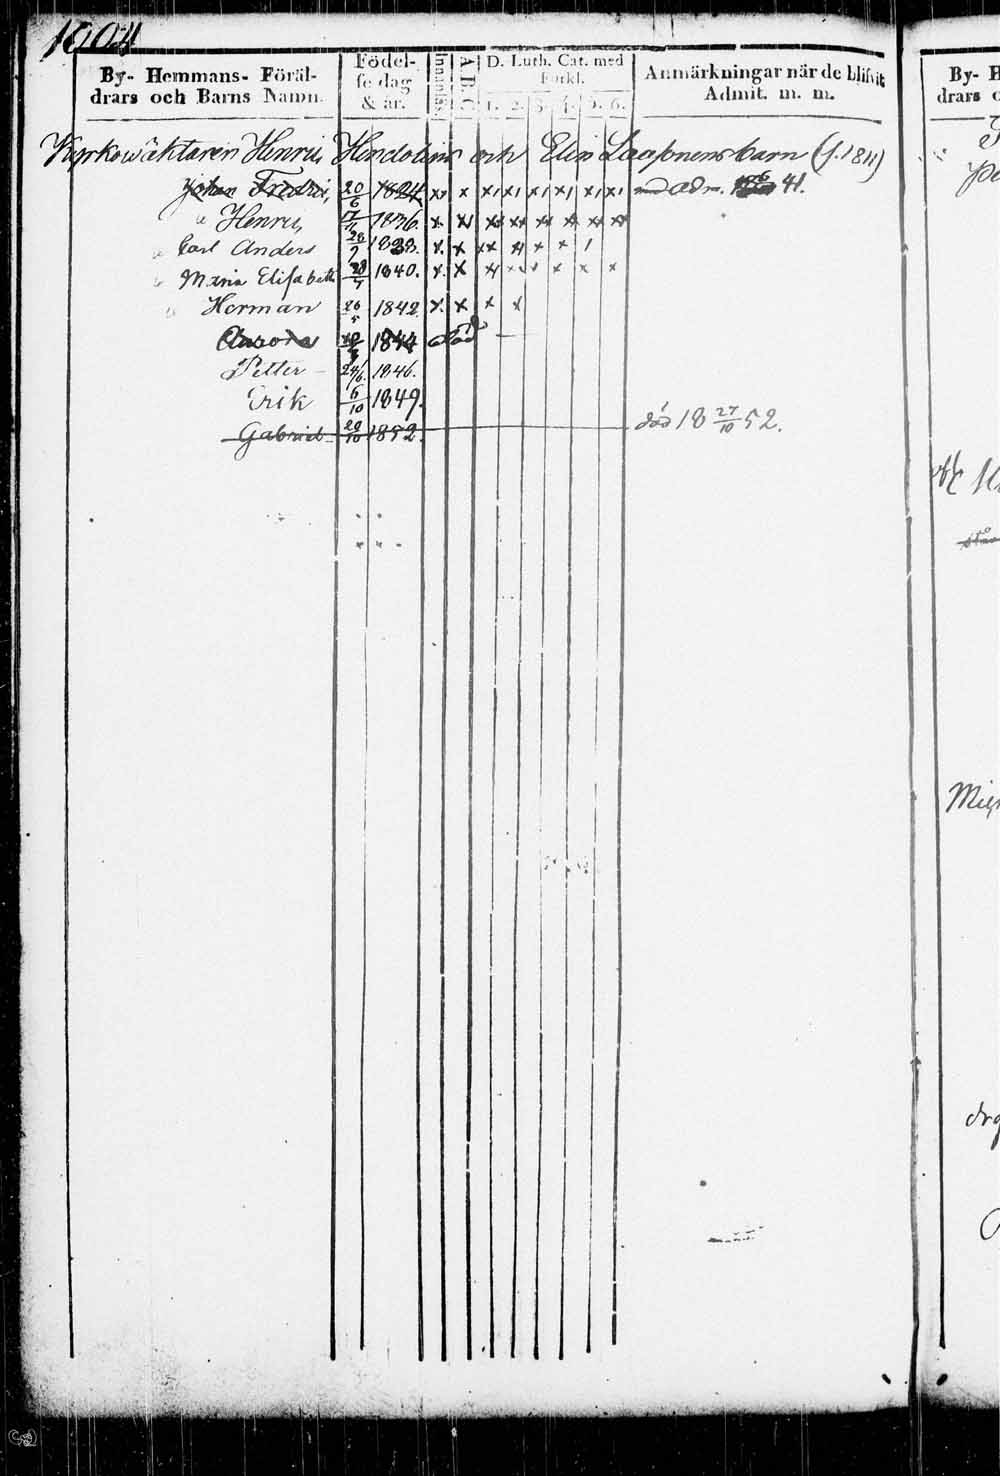 1004
By- Hemmans- Föräl-
drars och Barns Namn.
Födel-
se dag
& år.
Innanläs.
A B C
D. Luth. Cat. med
Förkl.
1. 2. 3. 4. 5. 6.
Anmärkningar när de blifvit
Admit. m. m.
Kyrkowäktaren Henric och Elin Laaponens barn (f. 1811)
Johan Fredric, 20/6 1824 x x x x x x x x adm. 41.
Henric, 17/11 1836. x x x x x x x x
Carl Anders 28/7 1838. x x x x x x
Maria Elisabeth 28/7 1840. x x x x x x x x
Herman 26/5 1842. x x x x
Aurora 1844 död
Petter 24/6. 1846.
Erik 6/10 1849.
Gabriel 20/10 1852. död 18 27/10 52.
By- H
drars o